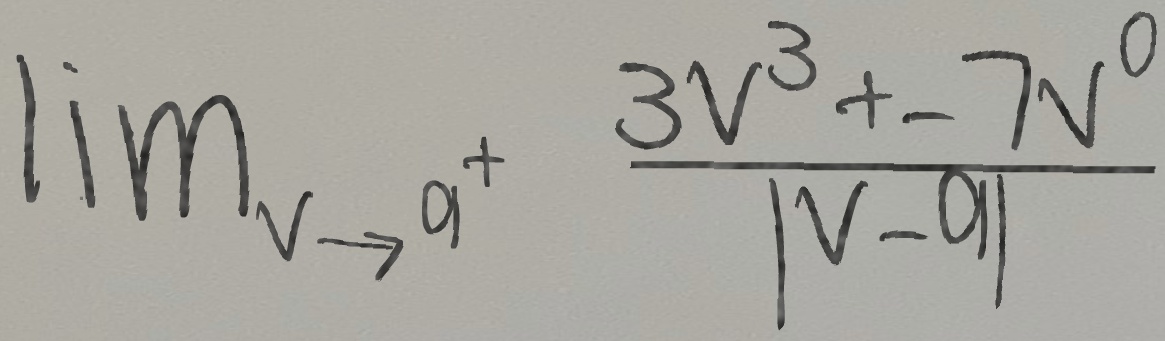 \lim_{v \to 9^+} \frac{3v^3 + -7v^0}{|v-9|}